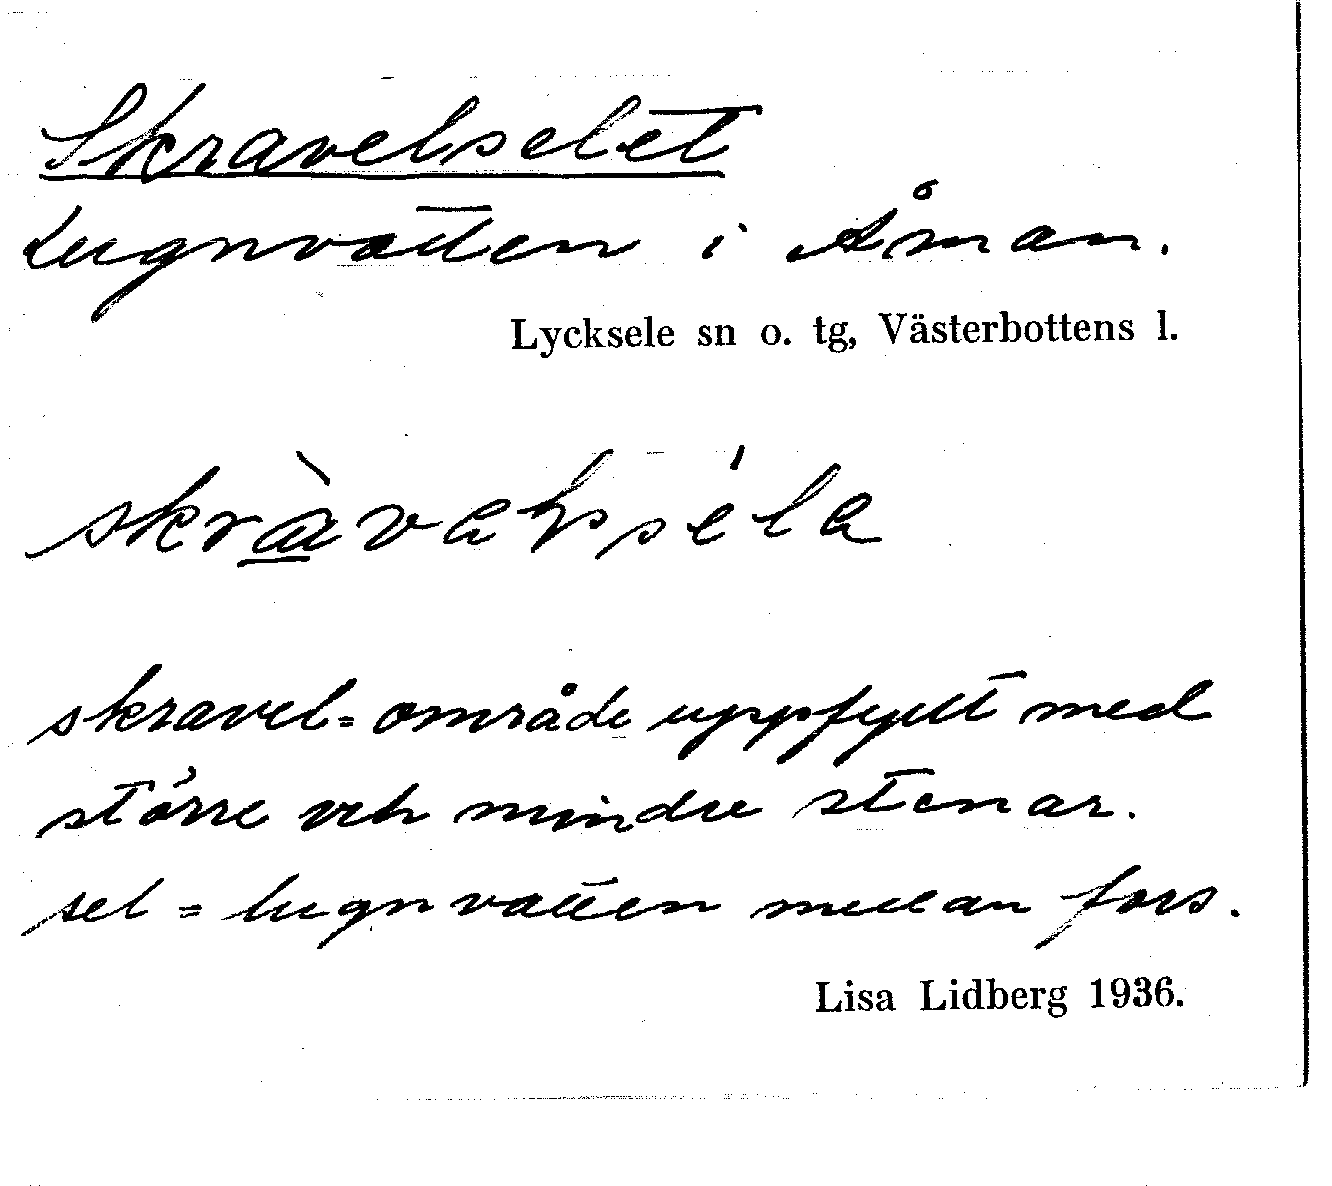 Skravelselet
Lugnvatten i Åman.
Lycksele sn o. tg, Västerbottens l.
skravel = område uppfyllt med
större och mindre stenar.
sel = lugnvatten mellan fors.
Lisa Lidberg 1936.